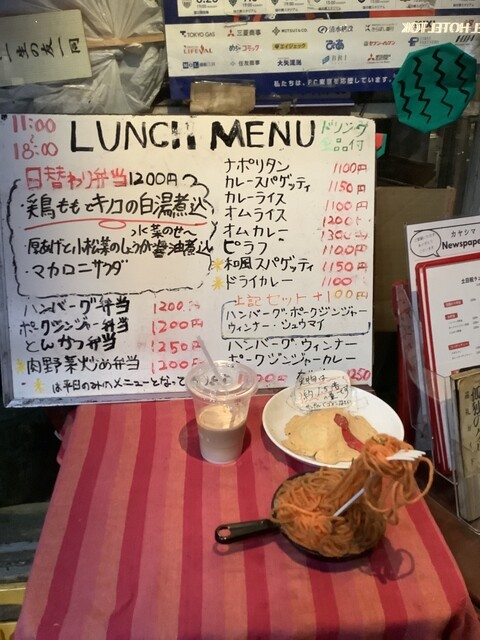 一生の友一同
TOKYO GAS
三菱商事
LIFEVAL
住友商事
大気運送
BRI
私たちは、FC東京を応援しています
11:00
~
18:00
LUNCH MENU
ドリンク
全品付
日替わり弁当 1200円
・鶏ももとキノコの白湯煮込
水菜のせ〜
・厚あげと小松菜のしょうが醤油煮込
・マカロニサラダ
ハンバーグ弁当 1200円
ポークジンジャー弁当 1200円
とんかつ弁当 1250円
肉野菜炒め弁当 1200円
は平日のみのメニューとなって
ナポリタン 1100円
カレースパゲッティ 1150円
カレーライス 1100円
オムライス 1200円
オムカレー 1300円
ピラフ 1100円
和風スパゲッティ 1150円
ドライカレー 1100円
上記セット+100円
ハンバーグ・ポークジンジャー
ウィンナー・シュウマイ
ハンバーグ・ウィンナー
ポークジンジャーカレー
1250
カヤシマ
Newspape